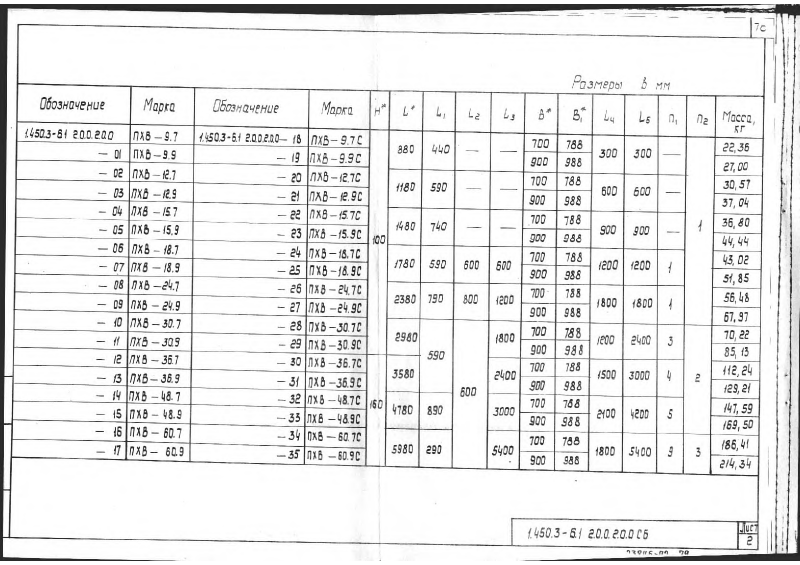 7с
Размеры в мм
Обозначение Марка Обозначение Марка H* L* L₁ L₂ L₃ B* B₁* L₄ L₅ n₁ n₂ Масса, кг
1.450.3-6.1 2.0.0.2.0.0 ПХВ-9.7 1.450.3-6.1 2.0.0.2.0.0-18 ПХВ-9.7С 100 880 440 — — 700 788 300 300 — 1 22,36
-01 ПХВ-9.9 -19 ПХВ-9.9С 900 988 27,00
-02 ПХВ-12.7 -20 ПХВ-12.7С 1180 590 — — 700 788 600 600 — 30,57
-03 ПХВ-12.9 -21 ПХВ-12.9С 900 988 37,04
-04 ПХВ-15.7 -22 ПХВ-15.7С 1480 740 — — 700 788 900 900 — 36,80
-05 ПХВ-15.9 -23 ПХВ-15.9С 900 988 44,44
-06 ПХВ-18.7 -24 ПХВ-18.7С 1780 590 600 600 700 788 1200 1200 1 43,02
-07 ПХВ-18.9 -25 ПХВ-18.9С 900 988 51,85
-08 ПХВ-24.7 -26 ПХВ-24.7С 2380 790 800 1200 700 788 1800 1800 1 56,48
-09 ПХВ-24.9 -27 ПХВ-24.9С 900 988 67,97
-10 ПХВ-30.7 -28 ПХВ-30.7С 2980 590 600 1800 700 788 1200 2400 3 2 70,22
-11 ПХВ-30.9 -29 ПХВ-30.9С 900 988 85,13
-12 ПХВ-36.7 -30 ПХВ-36.7С 160 3580 2400 700 788 1500 3000 4 112,24
-13 ПХВ-36.9 -31 ПХВ-36.9С 900 988 129,21
-14 ПХВ-48.7 -32 ПХВ-48.7С 4780 890 3000 700 788 2100 4200 5 147,59
-15 ПХВ-48.9 -33 ПХВ-48.9С 900 988 169,50
-16 ПХВ-60.7 -34 ПХВ-60.7С 5980 290 5400 700 788 1800 5400 9 3 186,41
-17 ПХВ-60.9 -35 ПХВ-60.9С 900 988 214,34
1.450.3-6.1 2.0.0.2.0.0 СБ
Лист
2